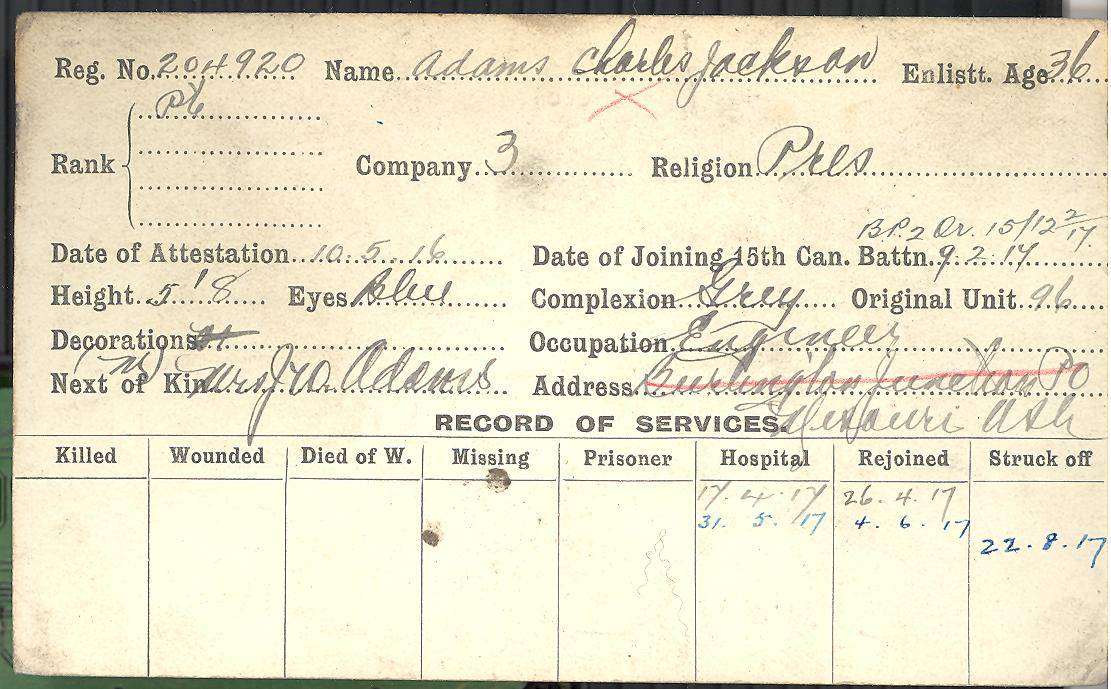 Reg. No. 204920 Name Adams Charles Jackson Enlistt. Age 36
Pte
Rank Company 3 Religion Pres
B.P. 2 Or. 15/12 2/17
Date of Attestation 10.5.16 Date of Joining 15th Can. Battn. 9.2.17
Height 5'8 Eyes Blue Complexion Grey Original Unit 96
Decorations Occupation Engineer
(M)
Next of Kin Mrs J W Adams Address Burlington Junction PO
Missouri USA
RECORD OF SERVICES.
Killed Wounded Died of W. Missing Prisoner Hospital Rejoined Struck off
17.4.17 26.4.17
31.5.17 4.6.17
22.8.17